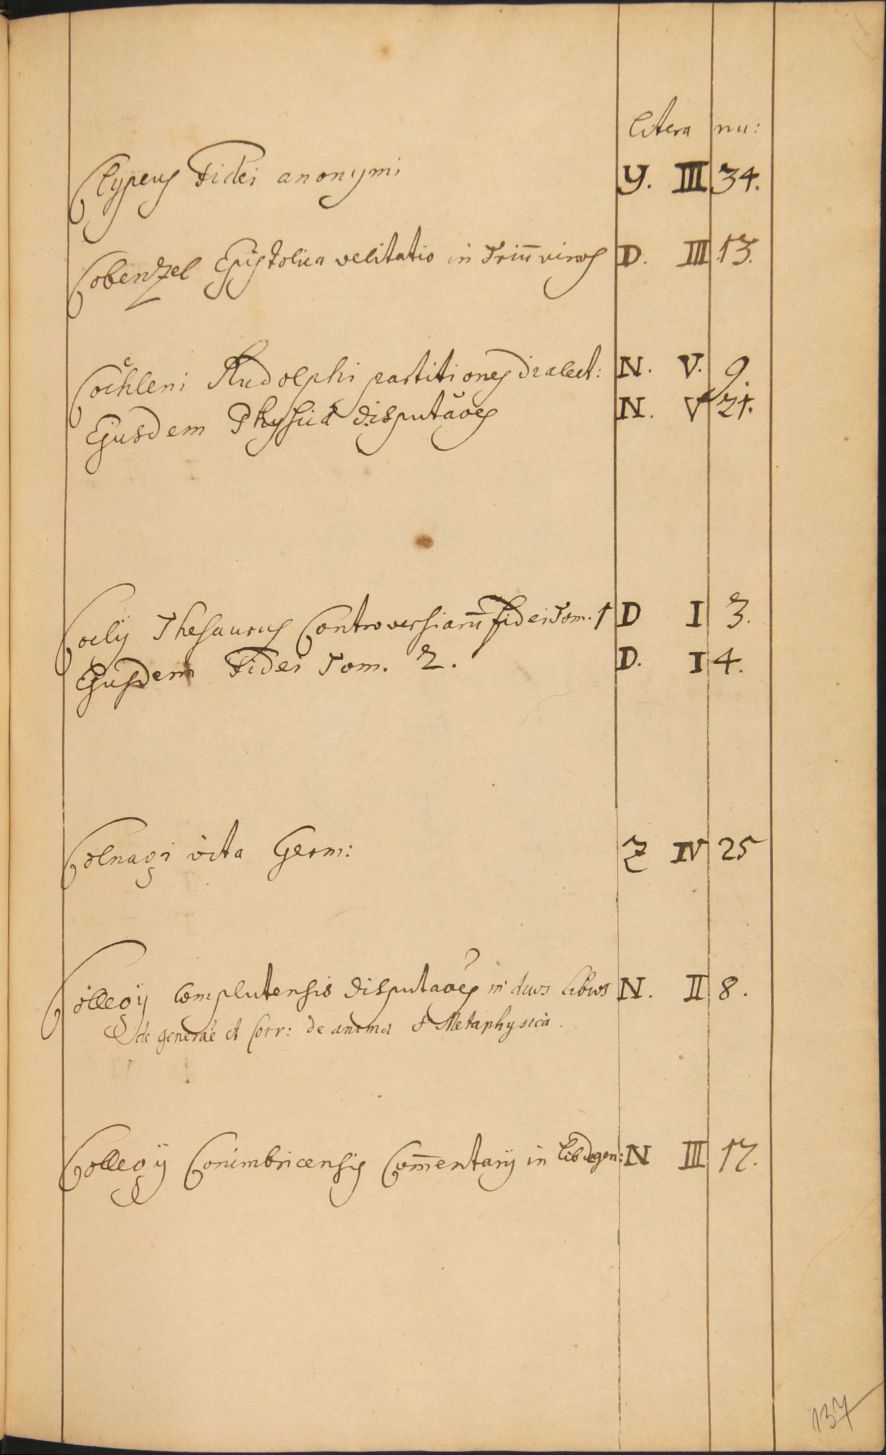 litera nu:
Clypeus Fidei anonymi Y. III 34.
Cobenzel Epistolica velitatio in Triūviros D. III 13.
Cochleni Rudolphi partitiones dialect: N. V. 9.
Ejusdem Physicæ disputāoes N. V 21.
Coelij Thesaurus Controversiarū fidei Tom. 1 D I 3.
Ejusdem Fidei Tom. 2. D. I 4.
Colnagi vita Germ: Z IV 25
Collegij Complutensis disputaōes in duos libros N. II 8.
de generāe et Corr: de anima et Metaphysica.
Collegij Conimbricensis Com̄entarij in lib de gen: N III 17.
137